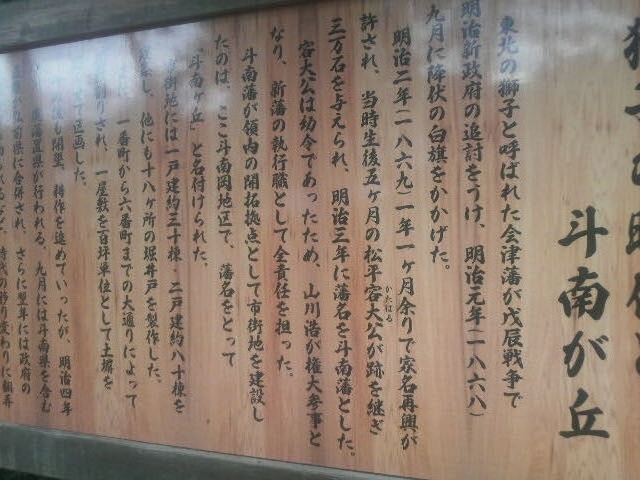 斗南が丘
東北の獅子と呼ばれた会津藩が戊辰戦争で
明治新政府の追討をうけ、明治元年(一八六八)
九月に降伏の白旗をかかげた。
明治二年(一八六九)一年一ヶ月余りで家名再興が
許され、当時生後五ヶ月の松平容大公が跡を継ぎ
かたはる
三万石を与えられ、明治三年に藩名を斗南藩とした。
容大公は幼令であったため、山川浩が権大参事と
なり、新藩の執行職として全責任を担った。
斗南藩が領内の開拓拠点として市街地を建設し
たのは、ここ斗南岡地区で、藩名をとって
「斗南ヶ丘」と名付けられた。
市街地には一戸建約三十棟・二戸建約八十棟を
建築し、他にも十八ヶ所の堀井戸を製作した。
一番町から六番町までの大通りによって
割りされ、一屋敷を百坪単位として土塀を
て区画した。
も開墾、耕作を進めていったが、明治四年
廃藩置県が行われる、九月には斗南県を含む
弘前県に合併され、さらに翌年には政府の
時代の移り変わりに翻弄